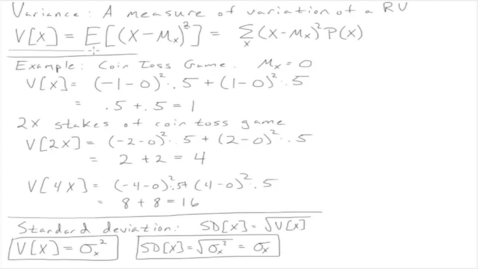 Variance: A measure of variation of a RV
V[X] = E[(X-Mₓ)²] = Σₓ (X-Mₓ)² P(X)
Example: Coin Toss Game. Mₓ = 0
V[X] = (-1-0)²·.5 + (1-0)²·.5
= .5 + .5 = 1
2X stakes of coin toss game
V[2X] = (-2-0)²·.5 + (2-0)²·.5
= 2 + 2 = 4
V[4X] = (-4-0)²·.5 + (4-0)²·.5
= 8 + 8 = 16
Standard deviation: SD[X] = √V[X]
V[X] = σₓ² SD[X] = √σₓ² = σₓ